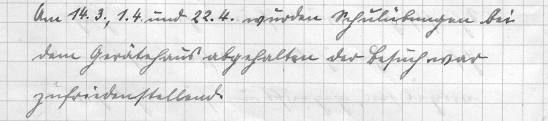 Am 14.3., 1.4. und 22.4. wurden Schulübungen bei
dem Gerätehaus abgehalten der Besuch war
zufriedenstellend.